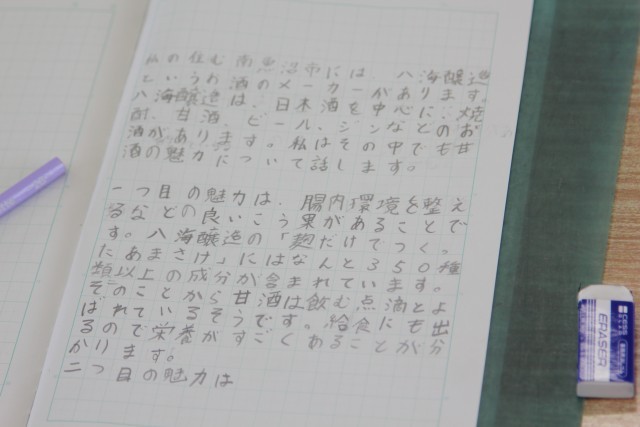 私の住む南魚沼市には、八海醸造
というお酒のメーカーがあります。
八海醸造は、日本酒を中心に、焼
酎、甘酒、ビール、ジンなどのお
酒があります。私はその中でも甘
酒の魅力について話します。
一つ目の魅力は、腸内環境を整え
るなどの良いこう果があることで
す。八海醸造の「麹だけでつくっ
たあまさけ」にはなんと350種
類以上の成分が含まれています。
そのことから甘酒は飲む点滴とよ
ばれているそうです。給食にも出
るので栄養がすごくあることが分
かります。
二つ目の魅力は
ERASER